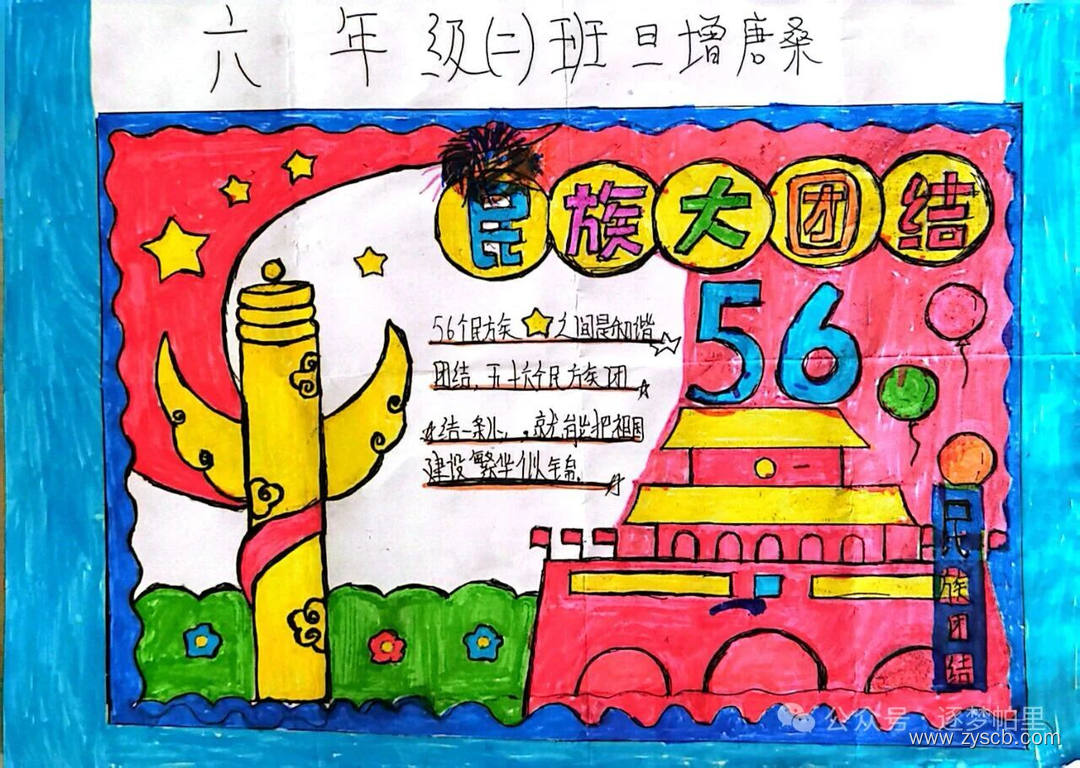 六年级(二)班旦增唐桑
民族大团结
56
56个民族之间是和谐
团结,五十六个民族团
结一条心,就能把祖国
建设繁华似锦.
民族团结
公众号·逐梦帕里
www.zyscb.com